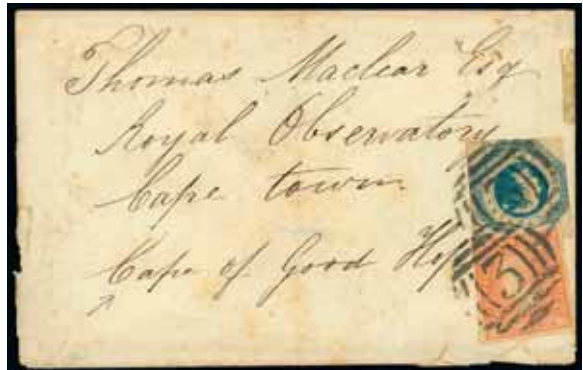 Thomas Maclear Esq
Royal Observatory
Cape town
Cape of Good Hope
3